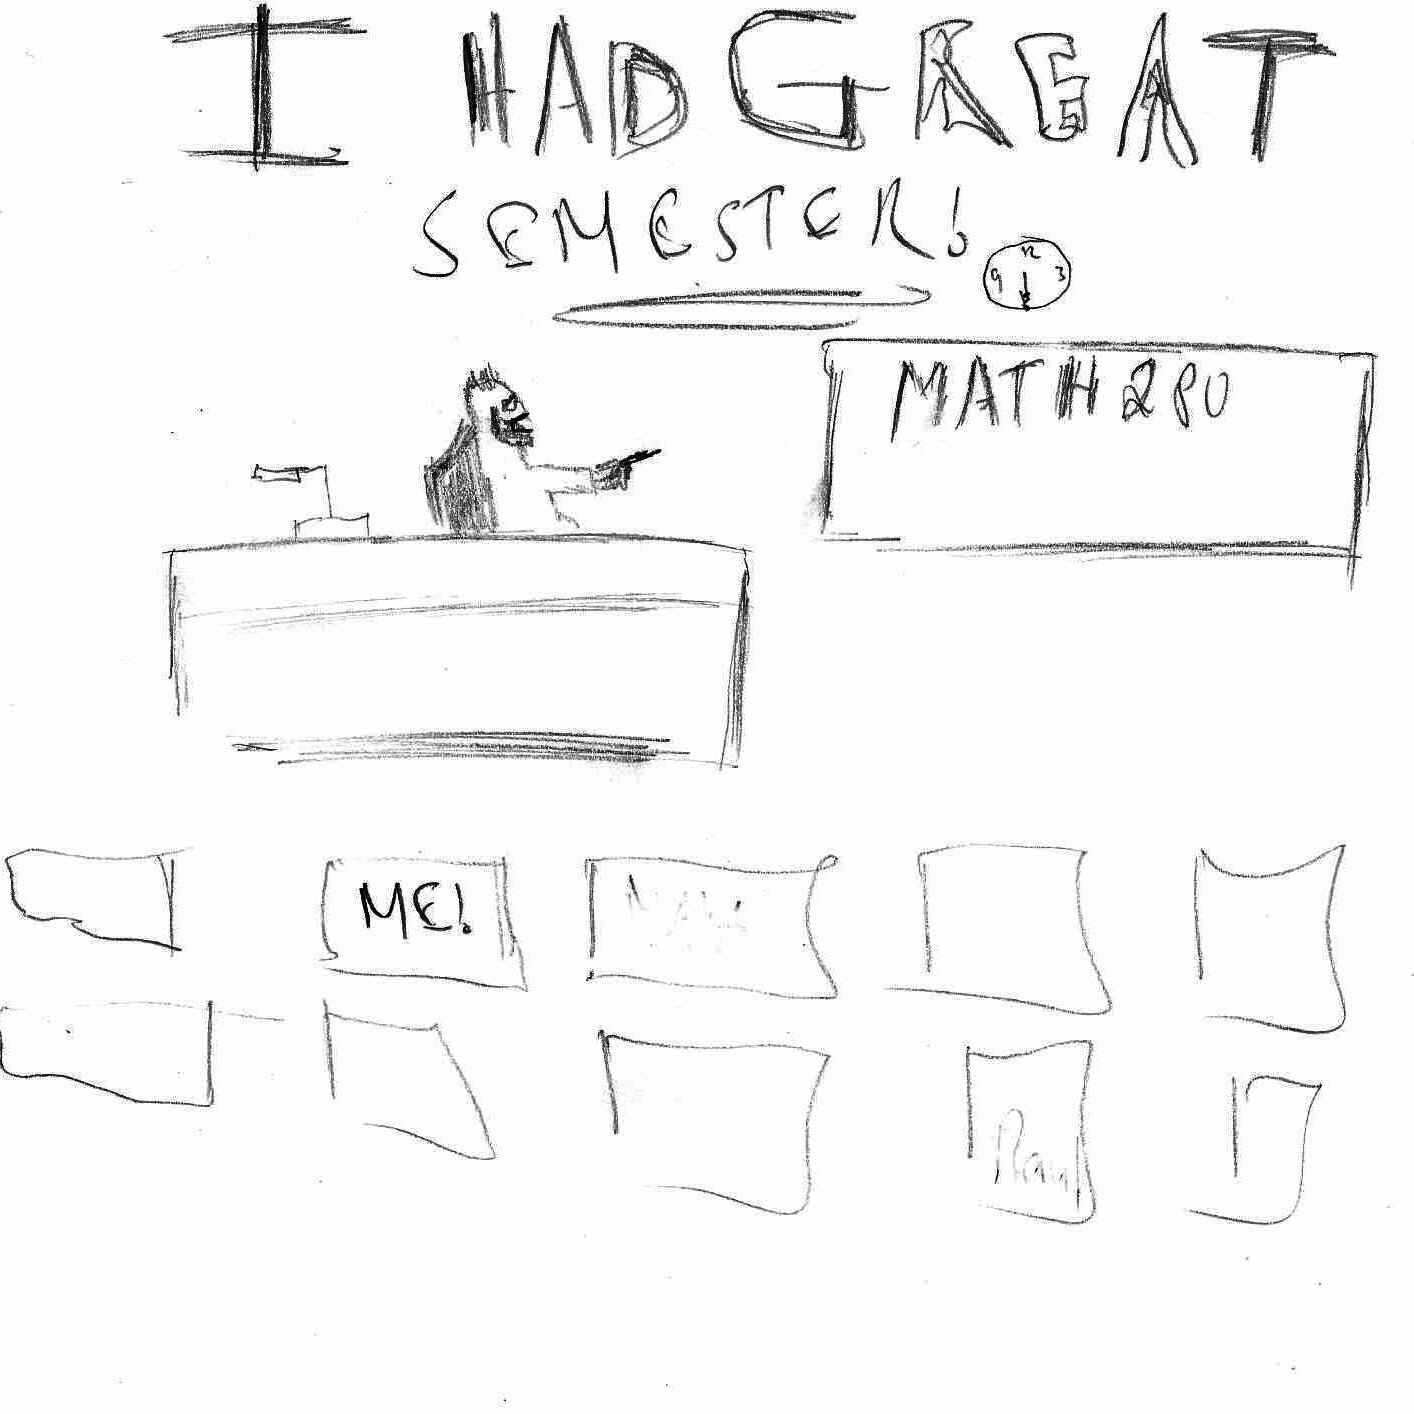 I HAD GREAT
SEMESTER!
12
9 3
MATH 280
ME!